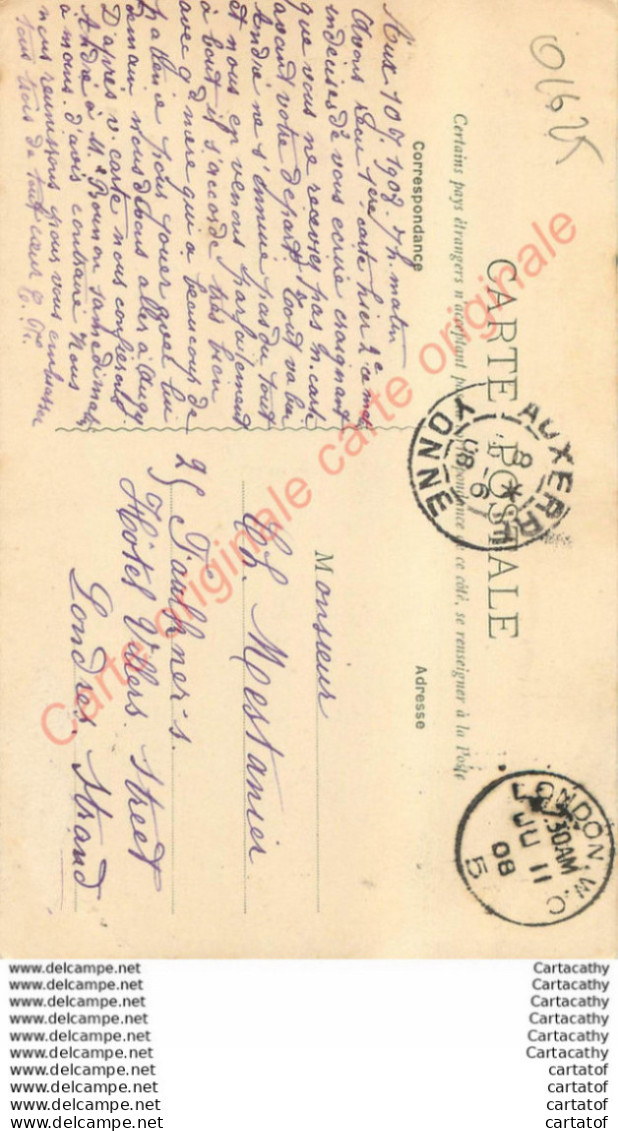 CARTE POSTALE
Certains pays étrangers n'acceptant pas de correspondance de ce côté, se renseigner à la Poste
Correspondance
Adresse
1908. 7 h. matin
Avons reçu 1ère carte hier 2e
indécises de vous écrire craignant
que vous ne receviez pas n. carte
avant votre départ. Tout va bien
André ne s'ennuie pas du tout
et nous en venons parfaitement
à bout il s'accorde très bien
avec gd mère qui a beaucoup de
patience pour jouer avec lui
demain nous devons aller à Augy
D'après v. carte nous conduirons
André à M. Bounon samedi matin
à moins d'avis contraire. Nous
nous réunissons pour vous embrasser
tous trois de tout cœur
Monsieur
Ch. Mestanier
25 Faulkner's.
Hôtel Villers Street
Londres. Strand
AUXERRE
YONNE
LONDON. W.C
.30AM
JU 11
08
5
Carte originale carte originale
www.delcampe.net
www.delcampe.net
www.delcampe.net
www.delcampe.net
www.delcampe.net
www.delcampe.net
www.delcampe.net
www.delcampe.net
www.delcampe.net
www.delcampe.net
Cartacathy
Cartacathy
Cartacathy
Cartacathy
Cartacathy
Cartacathy
cartatof
cartatof
cartatof
cartatof